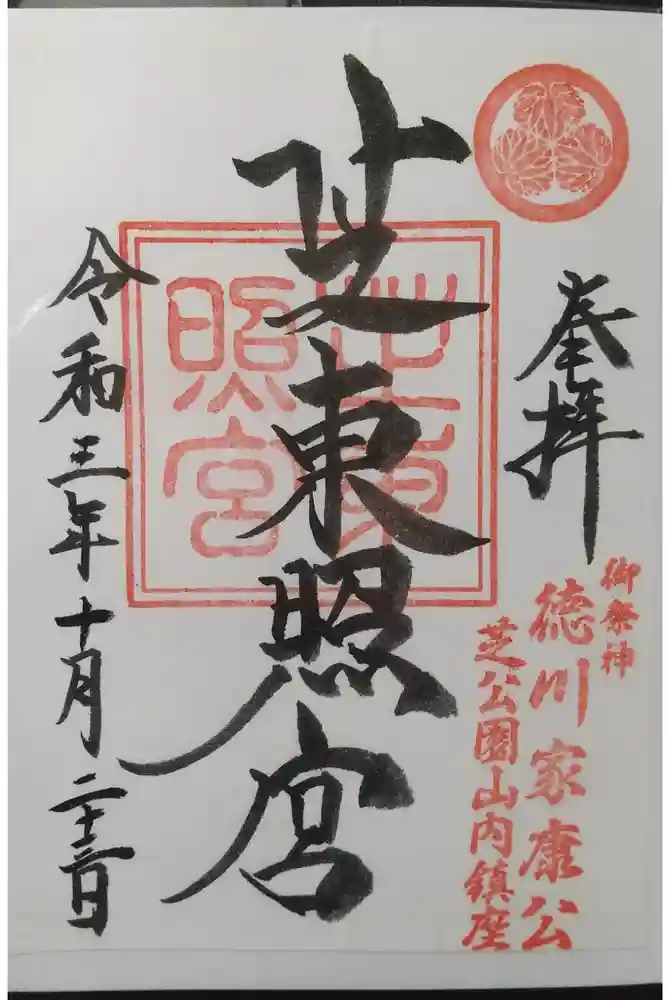 奉拝
御祭神
徳川家康公
芝公園山内鎮座
芝東照宮
芝東
照宮
令和三年十月二十三日